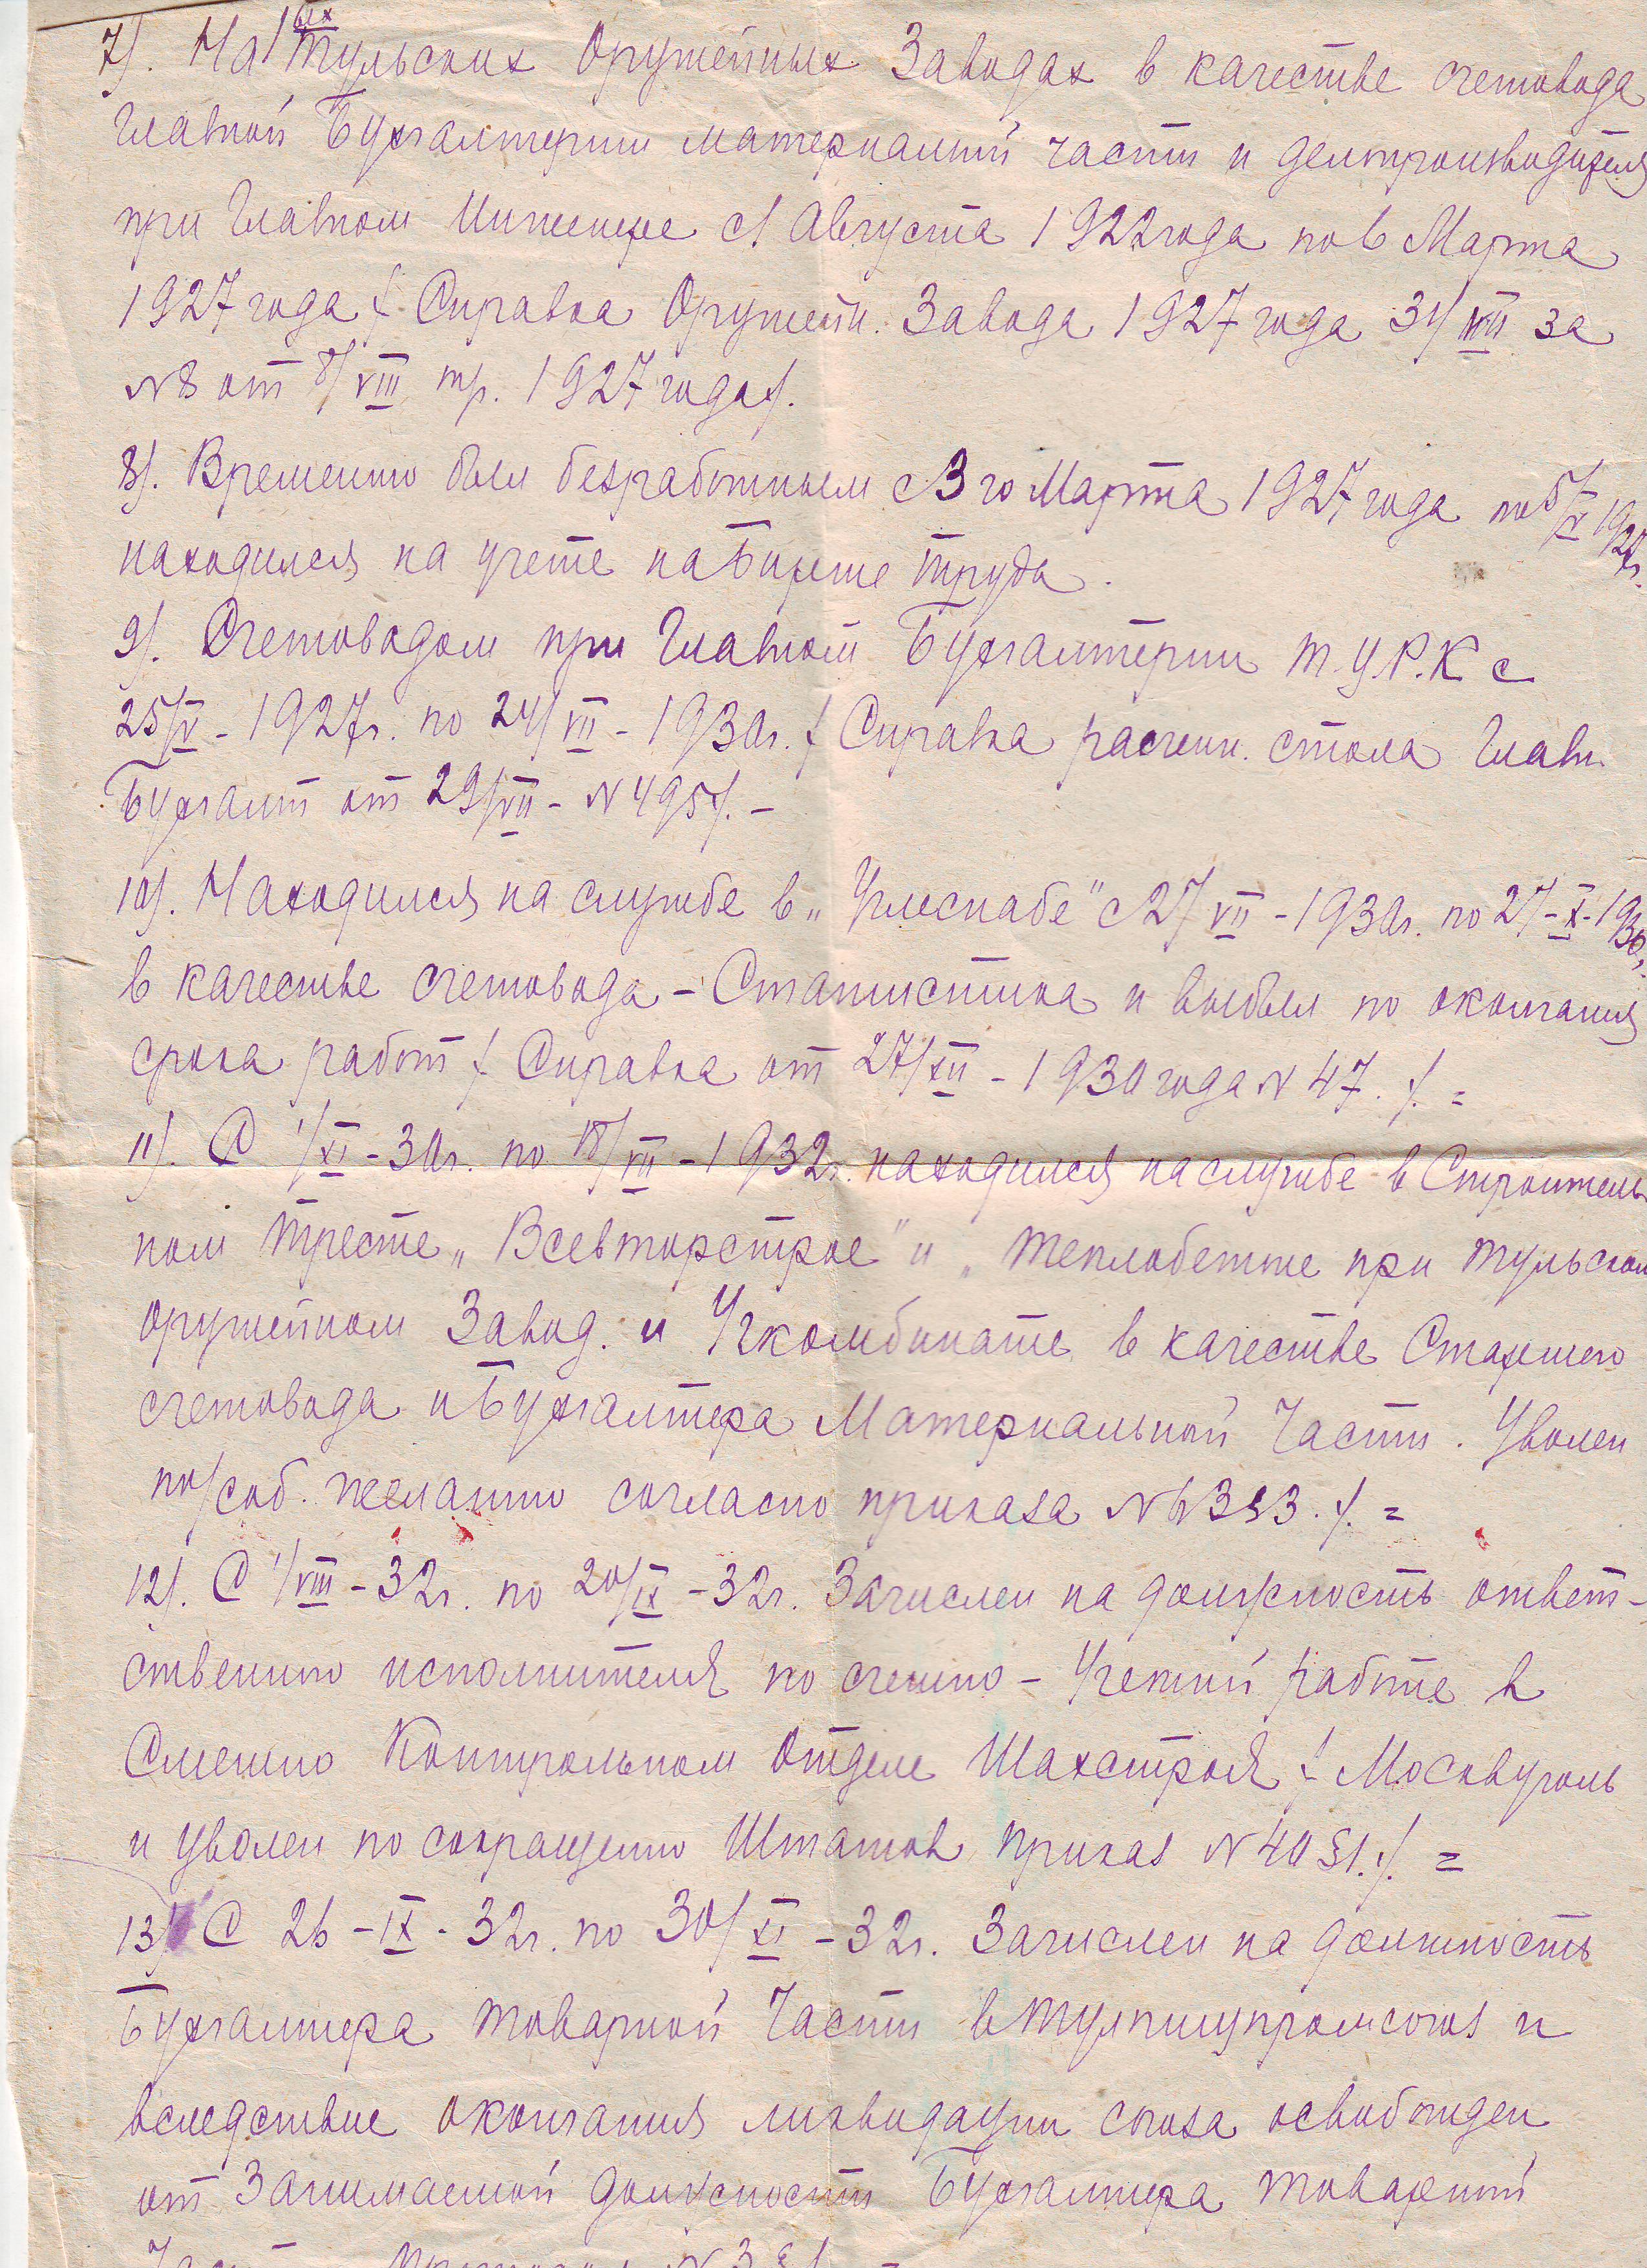 7). На 1ых Тульских Оружейных Заводах в качестве счетовода
Главной Бухгалтерии материальной части и делопроизводителя
при Главном Инженере с 1 Августа 1922 года по 6 Марта
1927 года /. Справка Оружейн. Завода 1927 года 31/VIII за
N8 от 8/VIII тр. 1927 года/.
8). Временно был безработным с 3го Марта 1927 года по 5/X 1927г.
находился на учете на Бирже Труда.
9). Счетоводом при Главной Бухгалтерии Т.У.Р.К с
25/V - 1927г. по 24/VII - 1930г. /. Справка расчетн. стола Главн.
Бухгалт от 29/VII - N495/. -
10). Находился на службе в „Углеснабе" с 27/VII - 1930г. по 27-X-1930г.
в качестве счетовода - Статистика и выбыл по окончания
срока работ /. Справка от 27/XII - 1930 года N 47. /. =
11). С 1/XI - 30г. по 18/VII - 1932г. находился на службе в Строитель
ном Тресте „Всевторстрое" и „Теплобетоне при Тульском
Оружейном Завод. и Угкомбинате в качестве Старшего
счетовода и Бухгалтера Материальной Части. Уволен
по/соб. желанию согласно приказа N /. =
12). С 1/VIII - 32г. по 20/IX - 32г. Зачислен на должность ответ-
ственного исполнителя по счетно - Учетной работе в
Сметно Контрольном Отделе Шахстроя /. Москвуголь
и уволен по сокращению Штатов приказ N 40 §1./. =
13) С 26 - IX - 32г. по 30/XI - 32г. Зачислен на должность
Бухгалтера Товарной Части в и
вследствие окончания ликвидации союза освобожден
от Занимаемой должности Бухгалтера Товарной